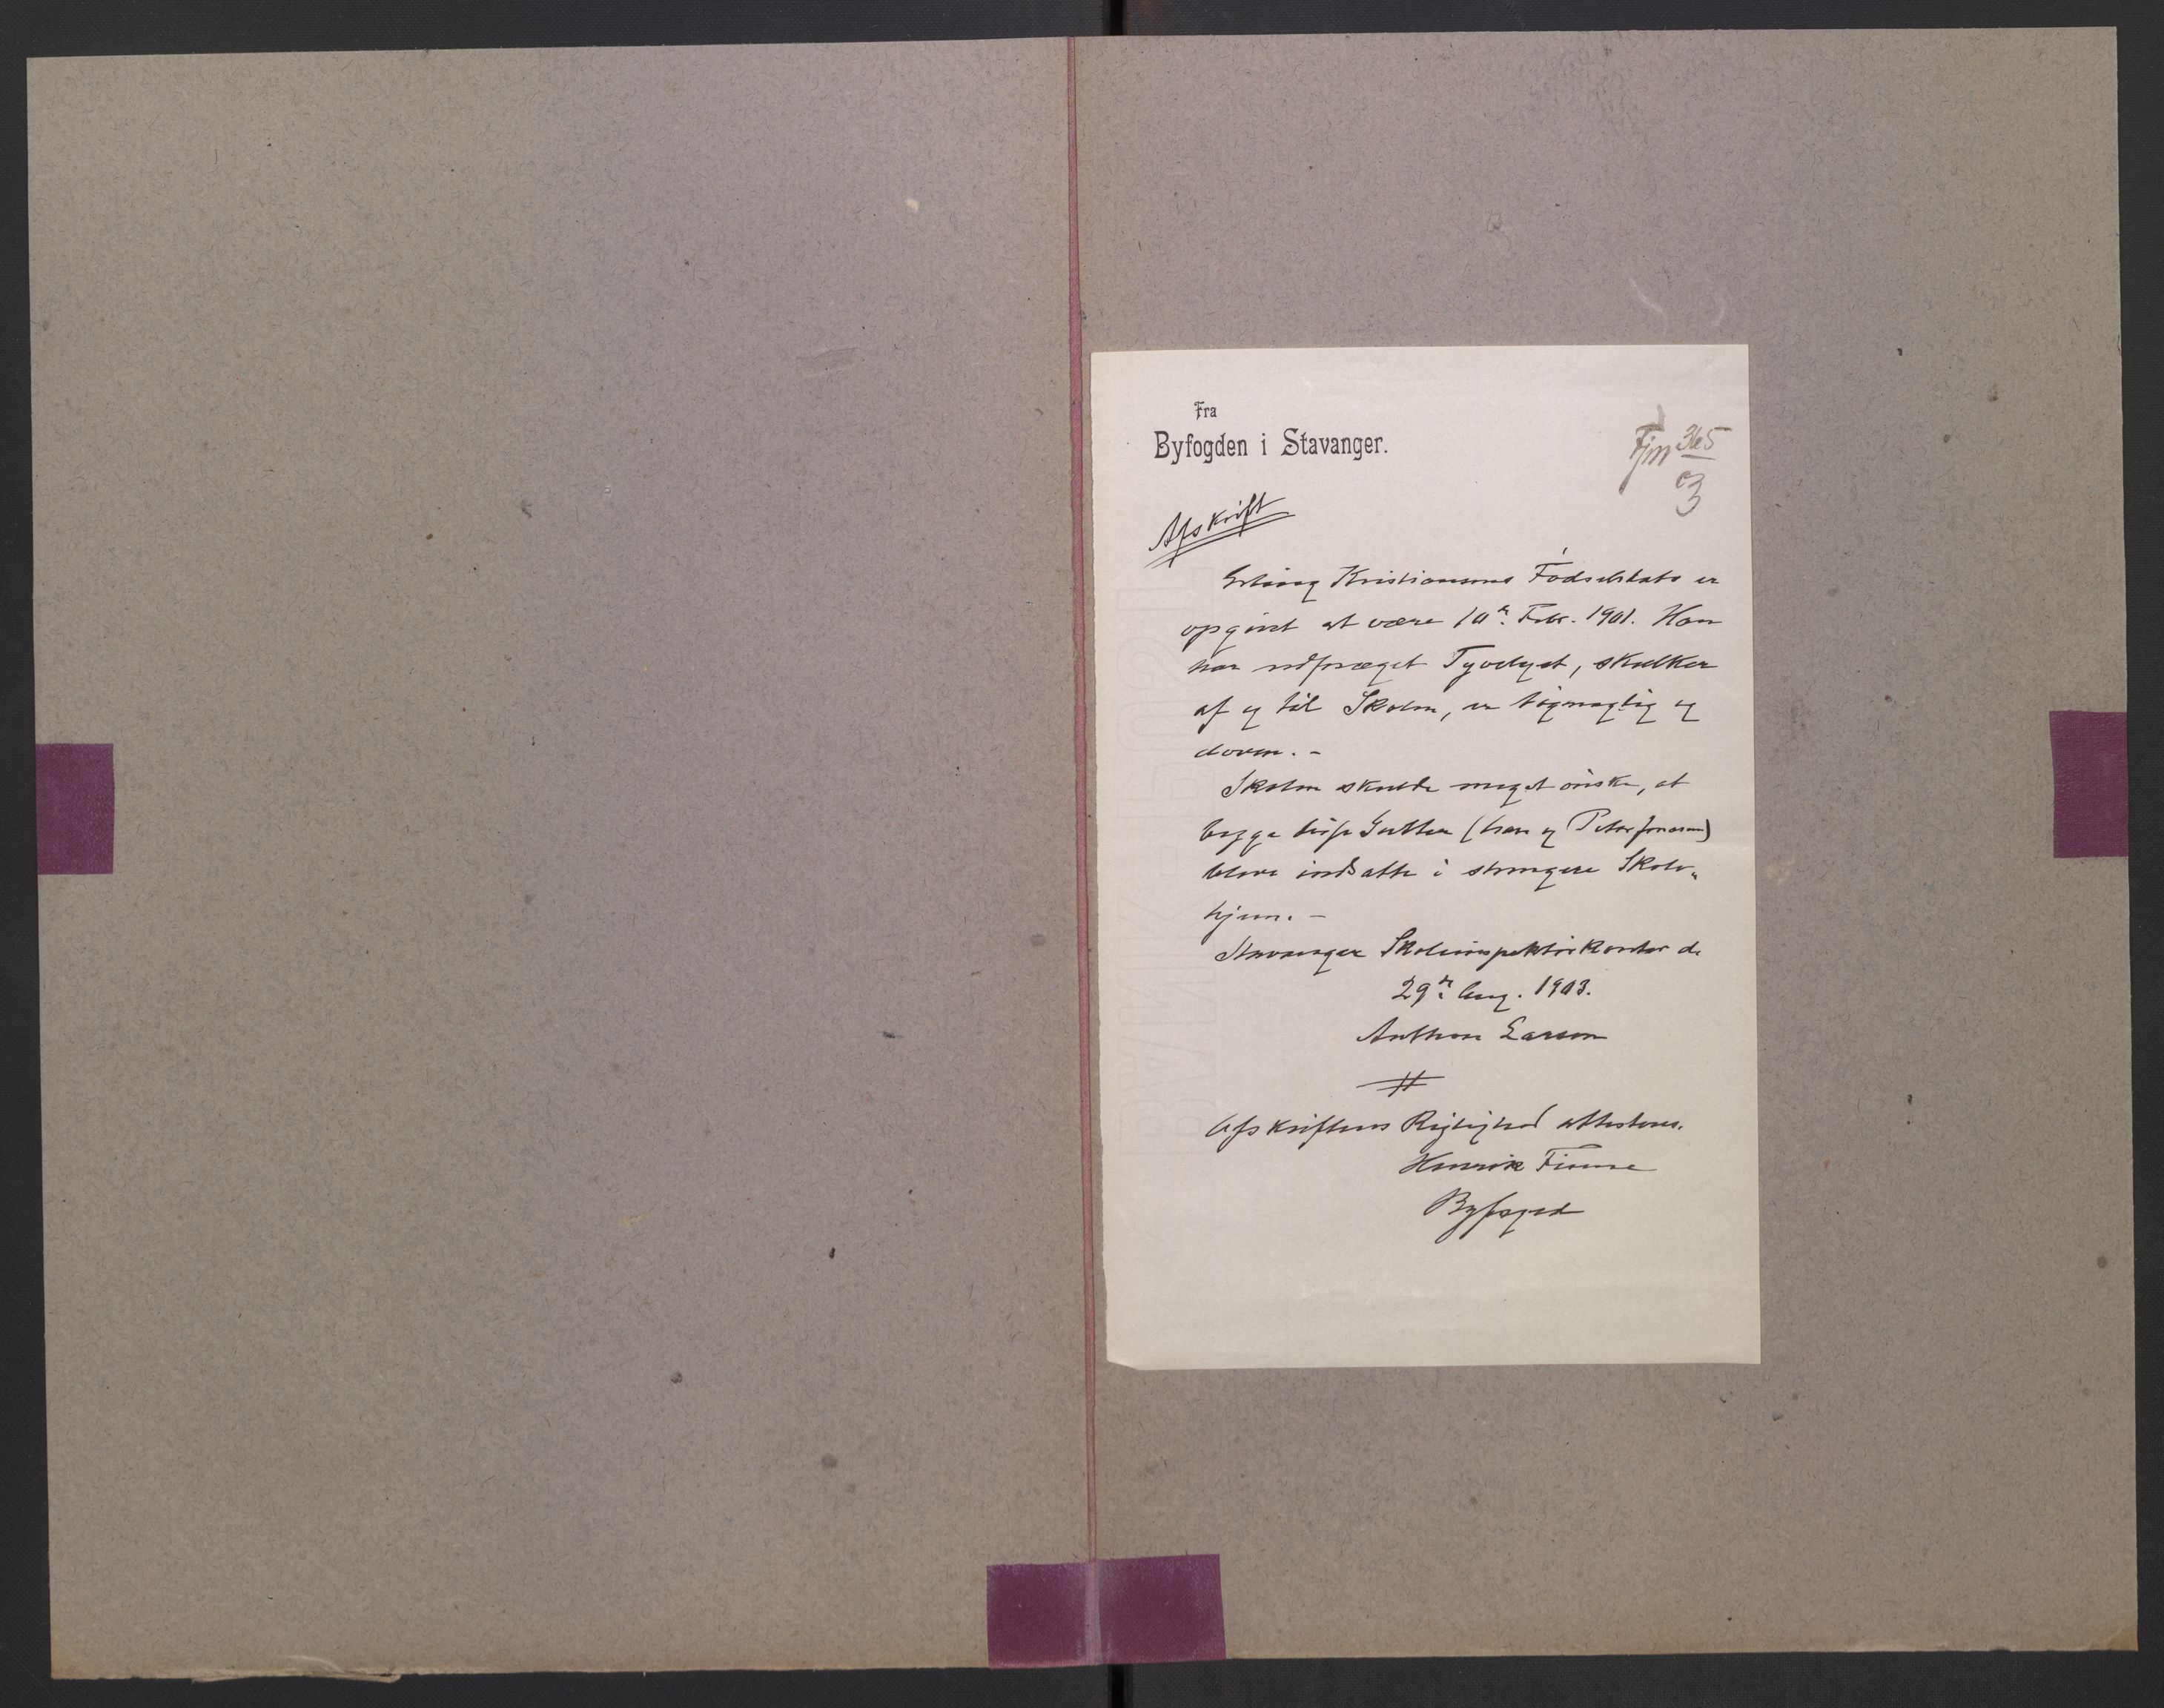 Fra
Byfogden i Stavanger.
Fjm 365
03
Afskrift
Erling Kristiansens Fødselsdato er
opgivet at være 10de Febr. 1901. Han
har udpræget Tyvelyst, skulker
af og til Skolen, er løgnagtig og
doven. -
Skolen skulde meget ønske, at
begge disse Gutter (han og Peter Jonassen)
bleve indsatte i strengere Skole„
hjem. -
Stavanger Skoleinspektørkontor de
29de Aug. 1903.
Anthon Larsen
Afskriftens Rigtighed attesteres.
Henrik Finne
Byfoged